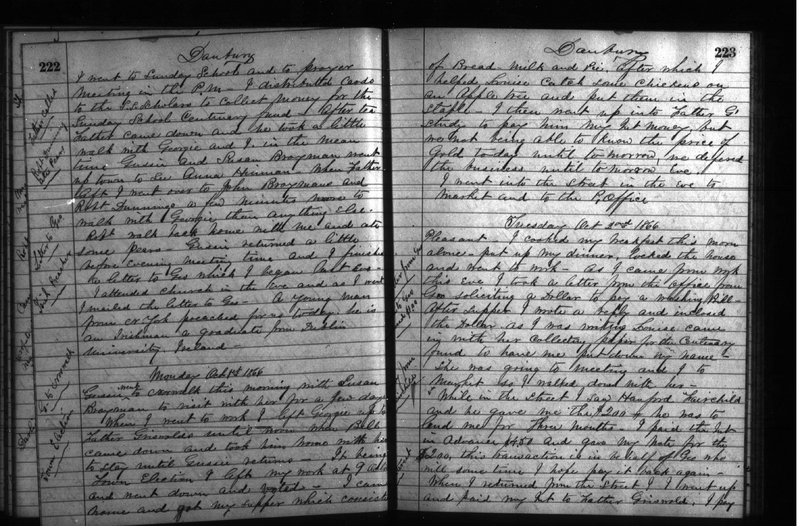 222
Danbury
I went to Sunday School and to prayer
Meeting in the P.M. - I distributed Cards
to the S.S. Scholars to collect money for the
Sunday School Centenary fund - After tea
Father came down and he took a little
walk with Georgie and I in the mean
time Gussie and Susan Brayman went
up town to see Anna Hinman When Father
left I went over to John Braymans and
Robt Tunnings a few minutes more to
walk with Georgie than anything else.
Robt walk back home with me and ate
some pears Gussie returned a little
before evening meeting time and I finished
the letter to Geo which I began last Eve -
I attended church in the Eve and as I went
I mailed the letter to Geo - A young man
from N York preached for us today he is
an Irishman a graduate from Dublin
University Ireland -
Monday Oct 1st 1866
Gussie went to Norwalk this morning with Susan
Brayman to visit with her for a few days
When I went to work I left Georgie up to
Father Griswolds until noon when
came down and took him home with
to stay until Gussie returns - It being
Town Election I left my work at 9
and went down and voted - I came
home and got my supper which consisted
223
Danbury
of Bread Milk and Pie, after which I
helped Louise catch some Chickens on
an Apple tree and put them in the
I then went up into Father G's
study to pay him my Int Money, but
we not being able to know the price of
Gold today until tomorrow we defered
the business until tomorrow Eve.
I went into the Street in the eve to
Market and to the P. Office
Tuesday Oct 2nd 1866
Pleasant I cooked my breakfast this morn
alone - put up my dinner, locked the house
and went to work - As I came from work
this eve I took a letter from the office from
Geo soliciting a Dollar to pay a washing Bill -
After supper I wrote a reply and inclosed
the Dollar as I was writing Louise came
in with her collecting paper for the Centenary
fund to have me put down my name -
she was going to meeting and I to
Market so I walked down with her -
While in the Street I saw Hanford Fairchild
and he gave me the $200 - he was to
lend me for three Months - I paid the Int
in Advance and gave my Note for the
$200, this transaction is in behalf of Geo who
will some time I hope pay it back again
When I returned from the Street I went up
and paid my Int to Father Griswold, I pay